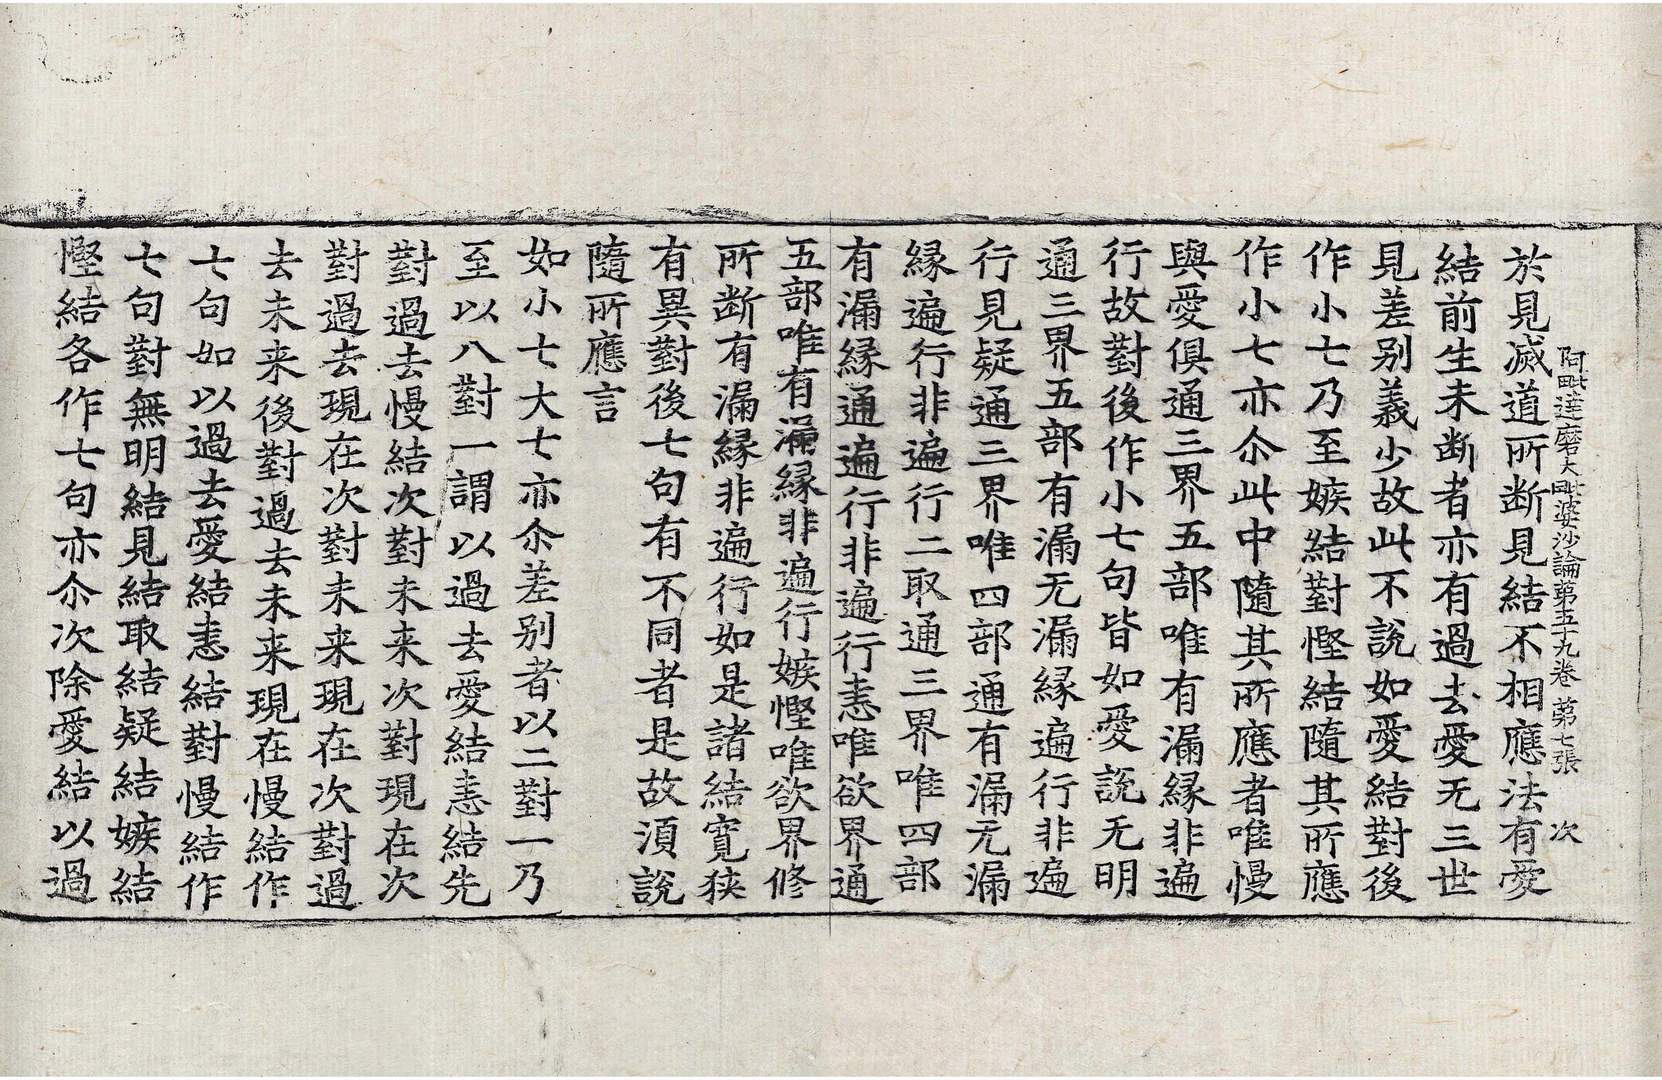 阿毗達磨大毗婆沙論第五十九卷 第七張 次
於見滅道所断見結不相應法有愛
結前生未断者亦有過去愛无三世
見差别義少故此不說如愛結對後
作小七乃至嫉結對慳結隨其所應
作小七亦尒此中隨其所應者唯慢
與愛俱通三界五部唯有漏縁非遍
行故對後作小七句皆如愛說无明
通三界五部有漏无漏縁遍行非遍
行見疑通三界唯四部通有漏无漏
縁遍行非遍行二取通三界唯四部
有漏縁通遍行非遍行恚唯欲界通
五部唯有漏縁非遍行嫉慳唯欲界修
所断有漏縁非遍行如是諸結寬狹
有異對後七句有不同者是故湏說
隨所應言
如小七大七亦尒差别者以二對一乃
至以八對一謂以過去愛結恚結先
對過去慢結次對未来次對現在次
對過去現在次對未来現在次對過
去未来後對過去未来現在慢結作
七句如以過去愛結恚結對慢結作
七句對無明結見結取結疑結嫉結
慳結各作七句亦尒次除愛結以過